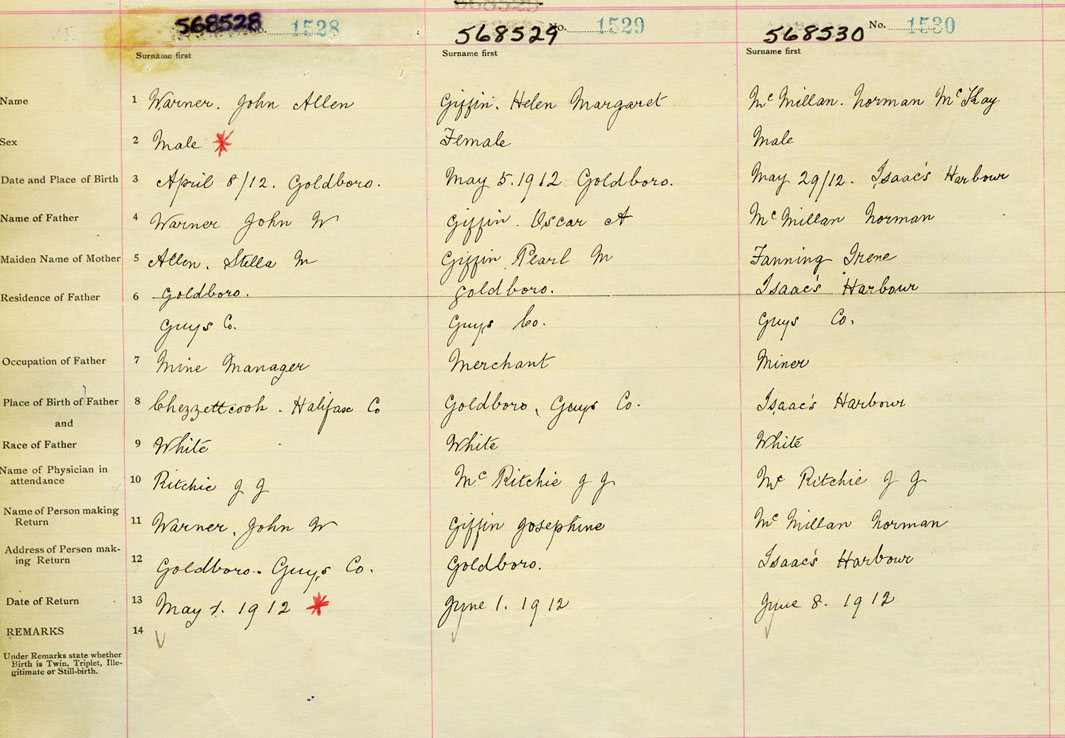 568528 No. 1528 568529 No. 1529 568530 No. 1530
Surname first Surname first Surname first
Name 1 Warner. John Allen Giffin. Helen Margaret Mc Millan. Norman Mc Kay
Sex 2 Male Female Male
Date and Place of Birth 3 April 8/12. Goldboro. May 5. 1912 Goldboro. May 29/12. Isaac's Harbour
Name of Father 4 Warner John W Giffin. Oscar A Mc Millan Norman
Maiden Name of Mother 5 Allen. Stella M Giffin Pearl M Fanning Irene
Residence of Father 6 Goldboro. Goldboro. Isaac's Harbour
Guys Co. Guys Co. Guys Co.
Occupation of Father 7 Mine Manager Merchant Miner
Place of Birth of Father 8 Chezzettcook. Halifax Co Goldboro, Guys Co. Isaac's Harbour
and
Race of Father 9 White White White
Name of Physician in
attendance 10 Ritchie J J Mc Ritchie J J Mc Ritchie J J
Name of Person making
Return 11 Warner, John W Giffin Josephine Mc Millan Norman
Address of Person mak-
ing Return 12 Goldboro. Guys Co. Goldboro. Isaac's Harbour
Date of Return 13 May 1. 1912 June 1. 1912 June 8. 1912
REMARKS 14
Under Remarks state whether
Birth is Twin, Triplet, Ille-
gitimate or Still-birth.